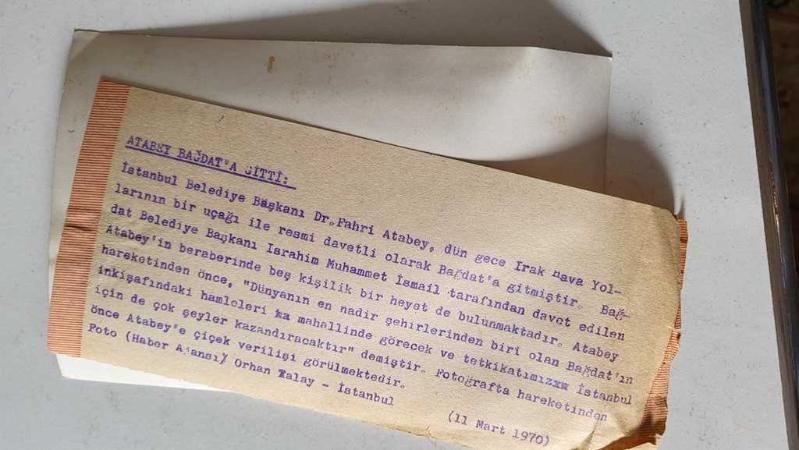 ATABEY BAĞDAT'A GİTTİ:
İstanbul Belediye Başkanı Dr.Fahri Atabey, dün gece Irak Hava Yol-
larının bir uçağı ile resmi davetli olarak Bağdat'a gitmiştir. Bağ-
dat Belediye Başkanı Israhim Muhammet İsmail tarafından davet edilen
Atabey'in beraberinde beş kişilik bir heyet de bulunmaktadır. Atabey
hareketinden önce, "Dünyanın en nadir şehirlerinden biri olan Bağdat'ın
inkişafındaki hamleleri mahallinde görecek ve tetkikatımız İstanbul
için de çok şeyler kazandıracaktır" demiştir. Fotoğrafta hareketinden
önce Atabey'e çiçek verilişi görülmektedir.
Foto (Haber Ajansı) Orhan Talay - İstanbul
(11 Mart 1970)